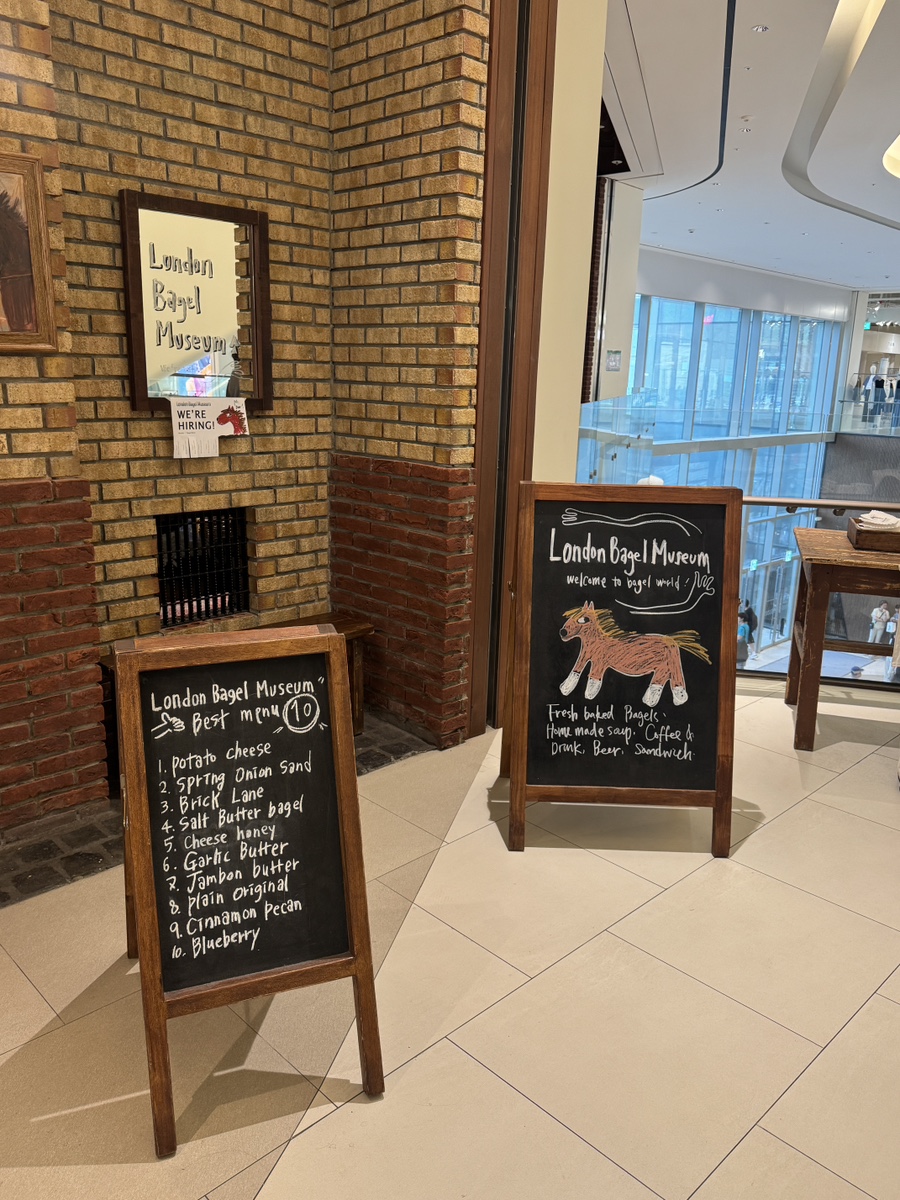 London
Bagel
Museum
London Bagel Museum
WE'RE
HIRING!
London Bagel Museum
Best menu 10
1. Potato cheese
2. Spring Onion Sand
3. Brick Lane
4. Salt Butter bagel
5. Cheese honey
6. Garlic Butter
7. Jambon butter
8. Plain Original
9. Cinnamon Pecan
10. Blueberry
London Bagel Museum
welcome to bagel world!
Fresh baked Bagels.
Home made soup. Coffee &
Drink, Beer. Sandwich.